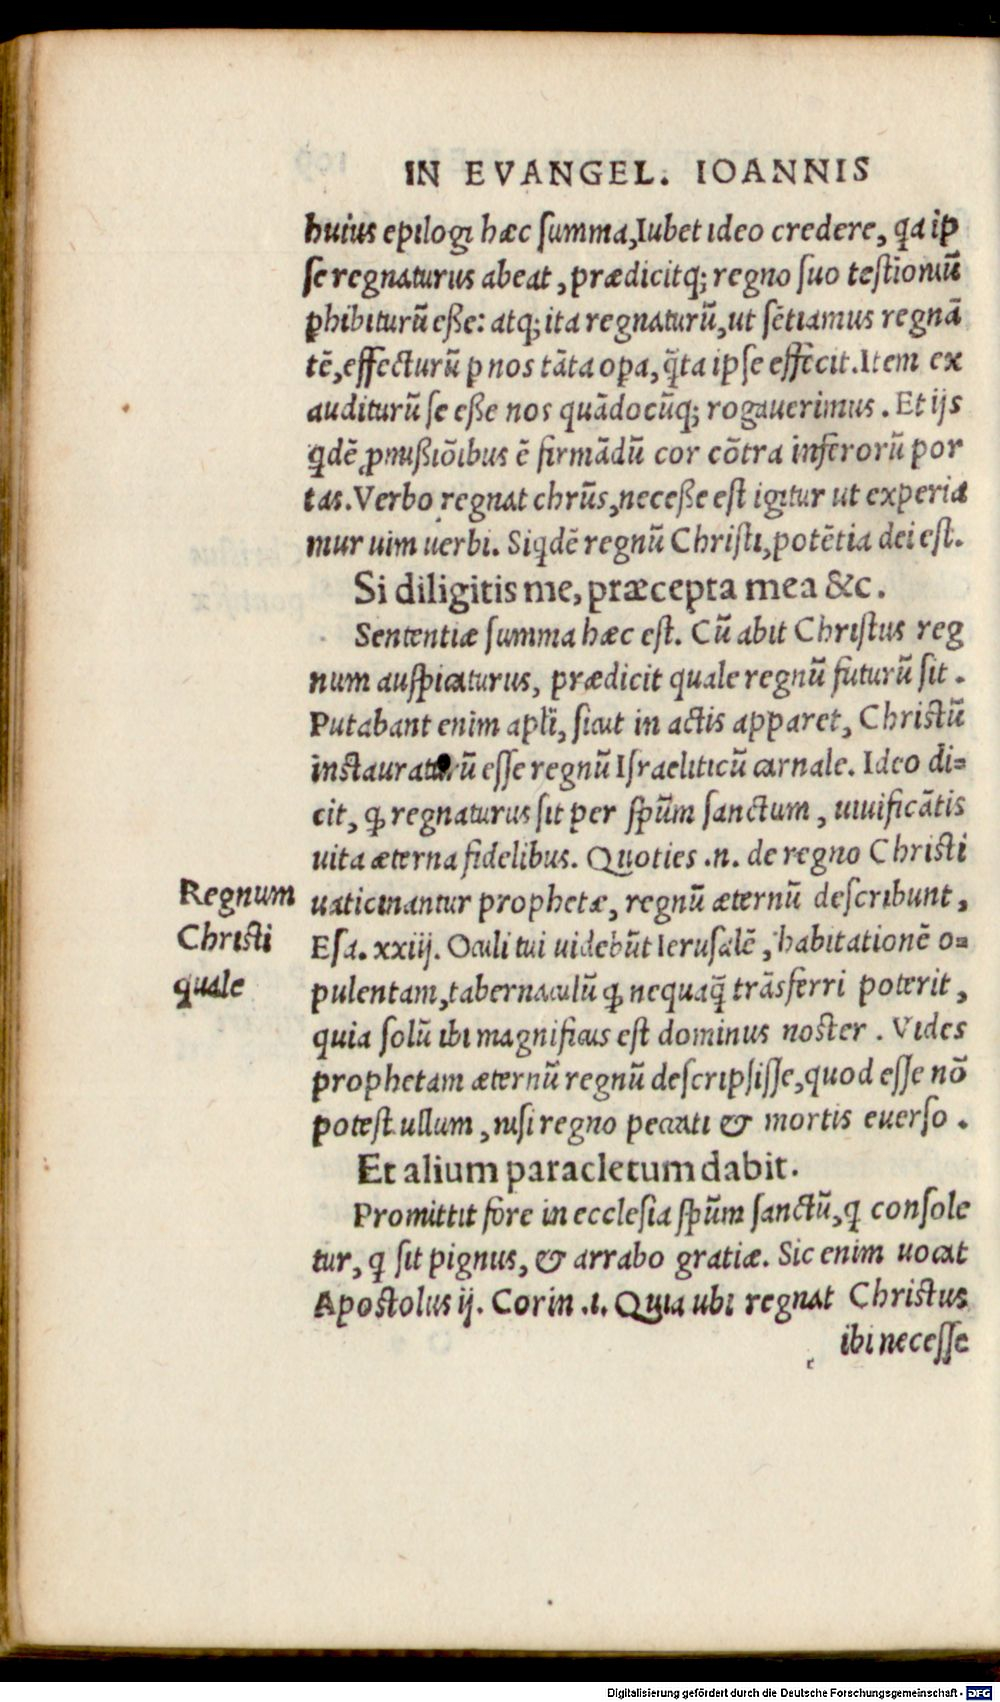 IN EVANGEL. IOANNIS
huius epilogi hæc summa, Iubet ideo credere, q̇a ip
ſe regnaturus abeat, prædicitq; regno ſuo teſtimoniū
ꝑhibiturū eße: atq; ita regnaturū, ut ſētiamus regnā
tē, effecturū ꝑ nos tāta oꝑa, q̄ta ipſe effecit. Item ex
auditurū ſe eße nos quādocūq; rogauerimus. Et ijs
q̇dē ꝓmißiōibus ē firmādū cor cōtra inferorū por
tas. Verbo regnat chrūs, neceße eſt igitur ut experia
mur uim uerbi. Siq̇dē regnū Chriſti, potētia dei eſt.
Si diligitis me, præcepta mea &c.
Sententiæ ſumma hæc eſt. Cū abit Chriſtus reg
num auſpicaturus, prædicit quale regnū futurū ſit.
Putabant enim apl̄i, ſicut in actis apparet, Chriſtū
inſtauraturū eſſe regnū Iſraeliticū carnale. Ideo di=
cit, ꝙ regnaturus ſit per ſpūm ſanctum, uiuificātis
uita æterna fidelibus. Quoties .n. de regno Chriſti
uaticinantur prophetæ, regnū æternū deſcribunt,
Eſa. xxiij. Oculi tui uidebūt Ieruſalē, habitationē o=
pulentam, tabernaculū ꝙ nequaq̄ trāsferri poterit,
quia ſolū ibi magnificus eſt dominus noſter. Vides
prophetam æternū regnū deſcripſiſſe, quod eſſe nō
poteſt ullum, niſi regno peccati & mortis euerſo.
Regnum
Chriſti
quale
Et alium paracletum dabit.
Promittit fore in eccleſia ſpūm ſanctū, q̇ conſole
tur, q̇ ſit pignus, & arrabo gratiæ. Sic enim uocat
Apoſtolus ij. Corin .1. Quia ubi regnat Chriſtus
ibi neceſſe
Digitalisierung gefördert durch die Deutsche Forschungsgemeinschaft - DFG